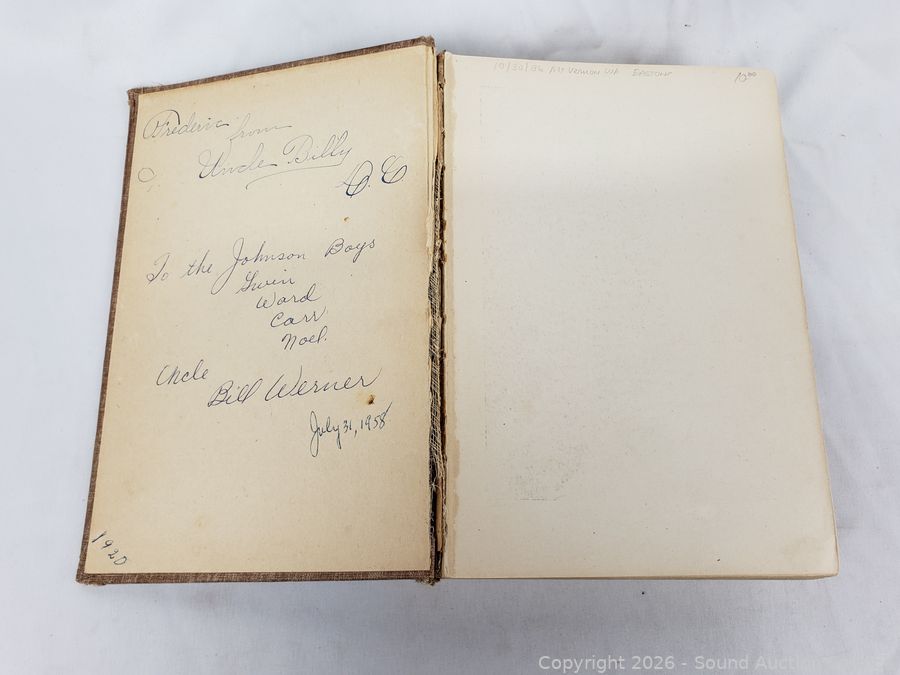 Frederic from
Uncle Billy
To the Johnson Boys
Gwin
Ward
Carr
Noel.
Uncle
Bill Werner
July 31, 1958
1920
10/30/86 Mt Vernon WA
10⁰⁰
Copyright 2026 - Sound Auction